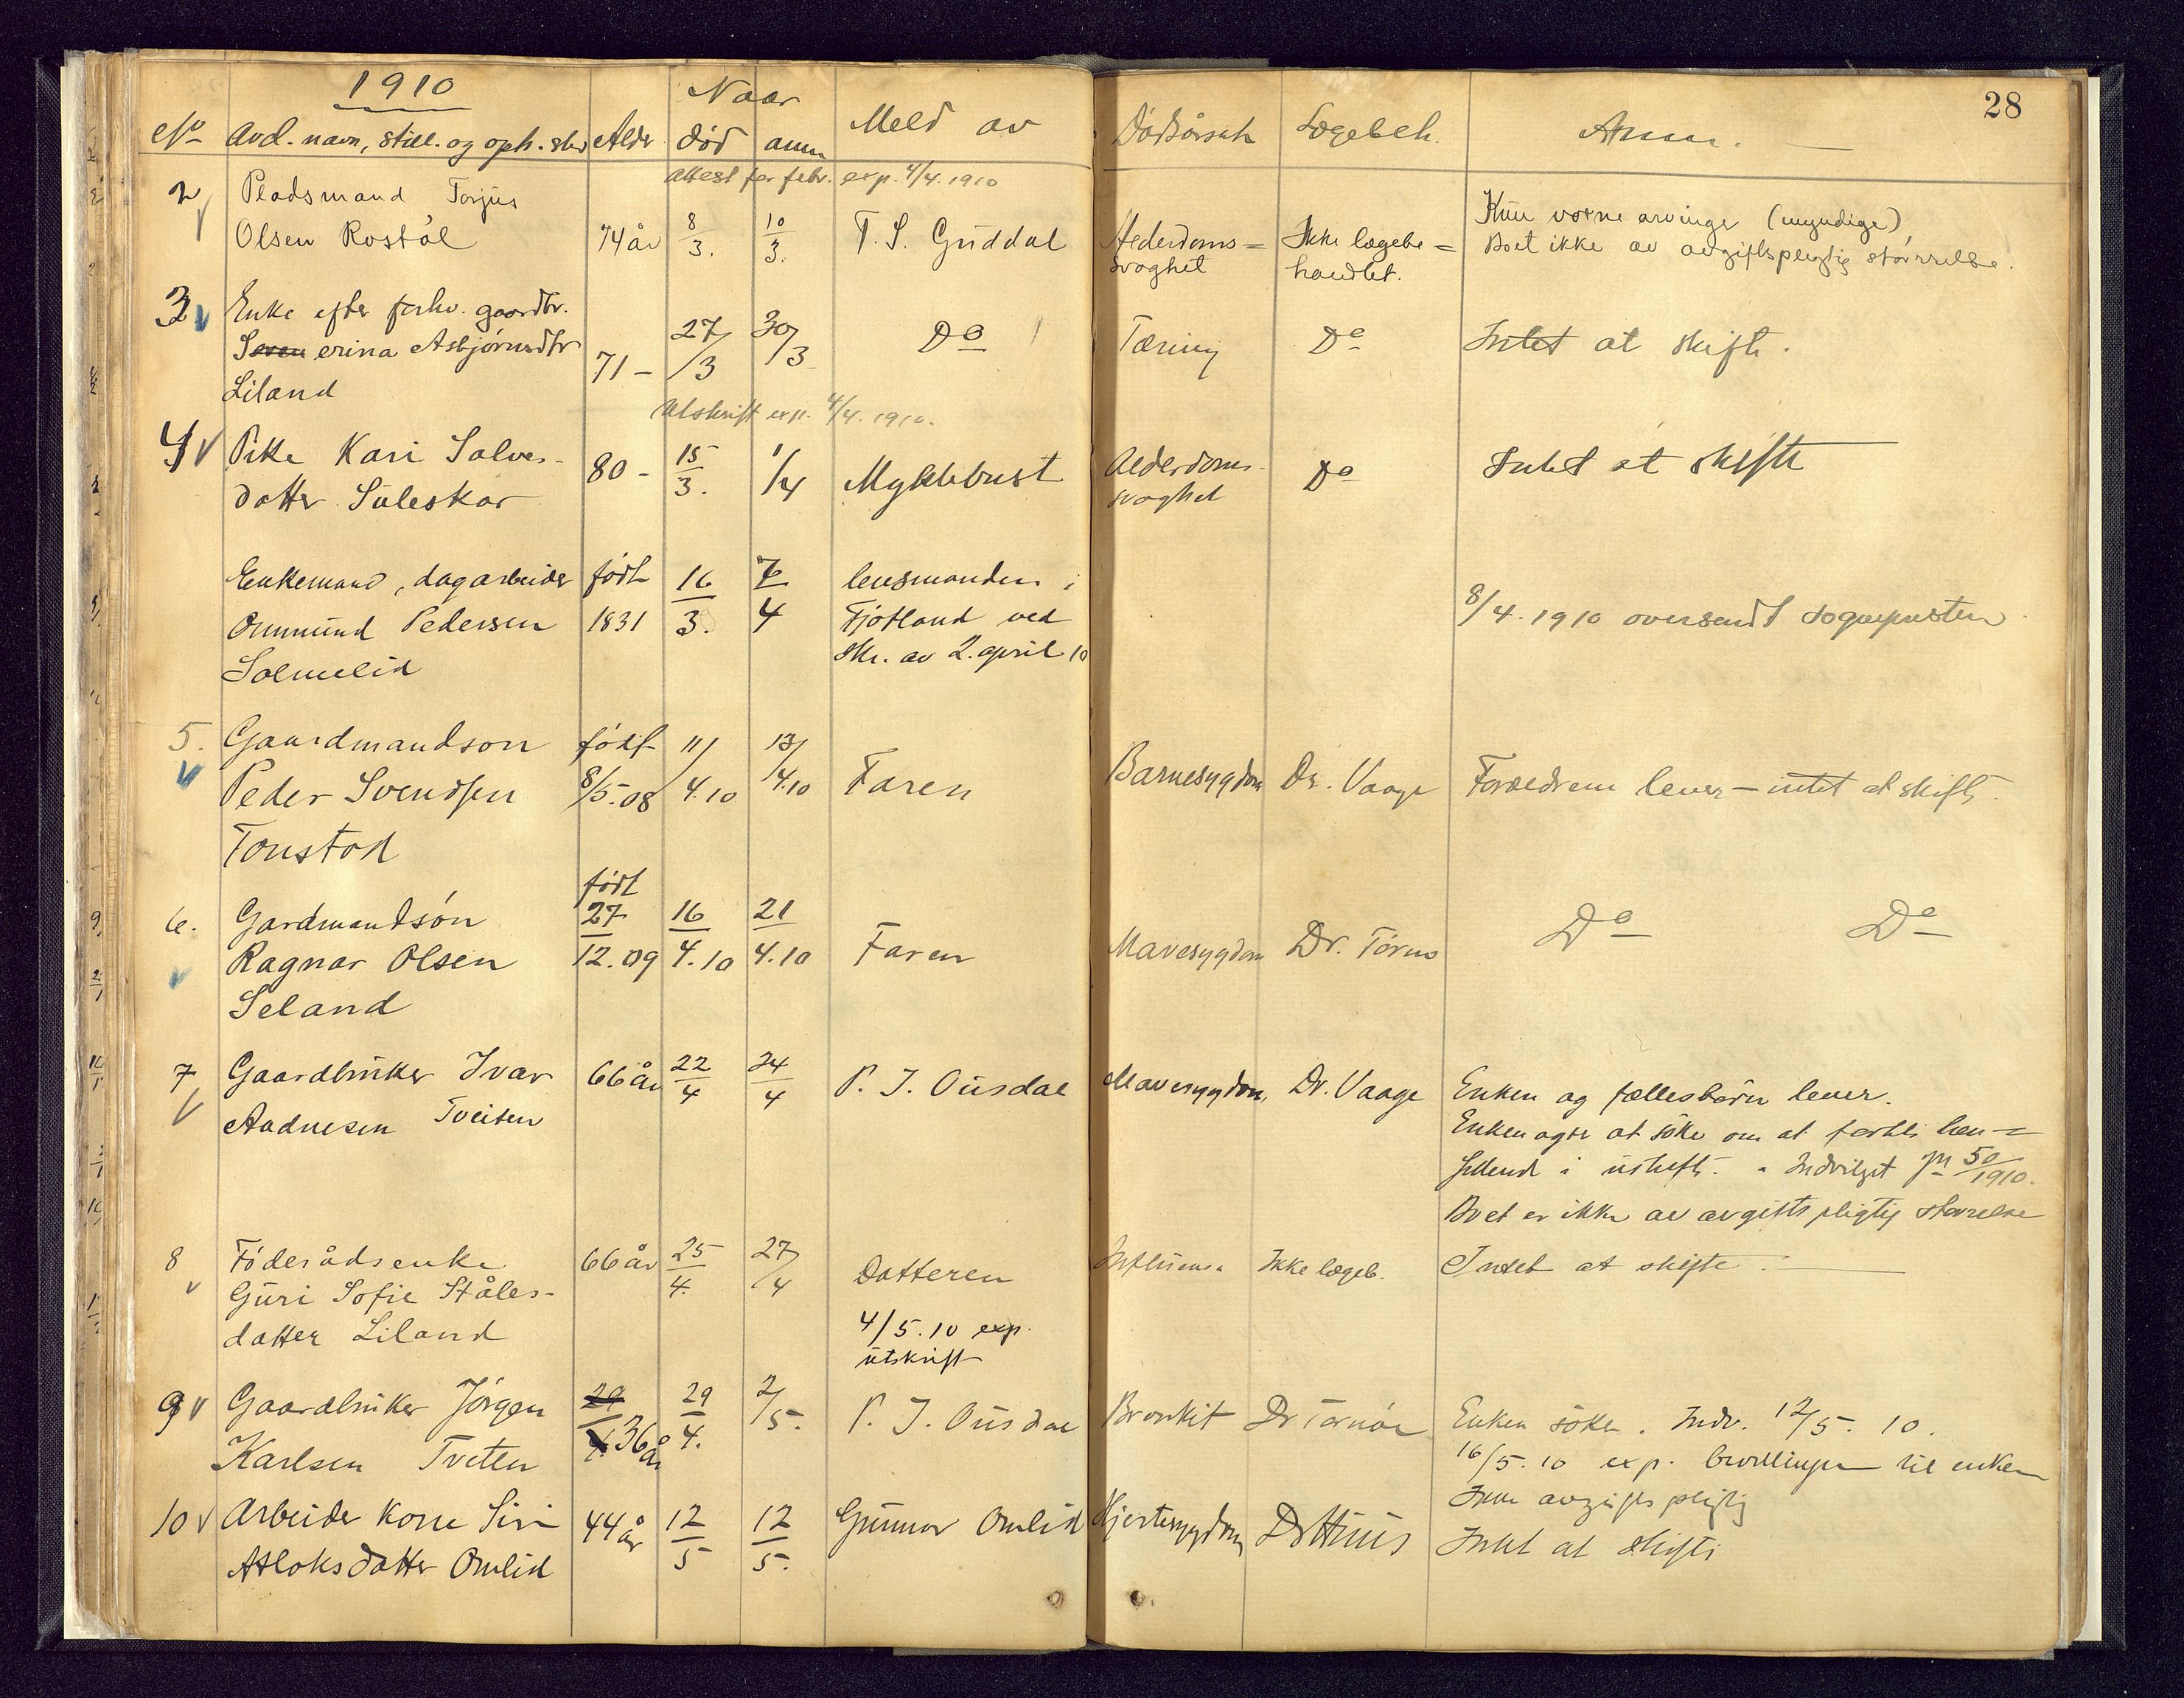 1910
28
No
Avd. navn, still. og oph. sted
Alder
Naar
død
anm
Meld av
Dødsårsak
Lægebeh.
Anm.
Attest for febr. exp. 4/4. 1910
2
Pladsmand Torjus
Olsen Rostøl
74 år
8/3.
10/3.
T. S. Guddal
Alderdoms=
svaghet
Ikke lægebe=
handlet.
Kun voxne arvinge (myndige)
Boet ikke av avgiftspligtig størrelse.
3
Enke efter forhv. gaardbr.
Severina Asbjørnsdtr
Liland
71 -
27/3
30/3
Do
Tæring
Do
Intet at skifte.
Utskrift exp. 4/4. 1910.
4
Pike Kari Salves-
datter Suleskar
80 -
15/3.
1/4
Myklebust
Alderdoms-
svaghet
Do
Intet at skifte
Enkemand, dagarbeider
Ommund Pedersen
Solmelid
født
1831
16/3.
7/4
lensmanden i
Fjotland ved
skr. av 2. april 10
8/4. 1910 oversendt sogneprsten
5.
Gaardmandsøn
Peder Svendsen
Tonstad
født
8/5.08
11/4.10
13/4.10
Faren
Barnesygdom
Dr. Vaage
Forældrene lever - intet at skifte.
6.
Gardmandsøn
Ragnar Olsen
Seland
født
27/12.09
16/4.10
21/4.10
Faren
Mavesygdom
Dr. Tørno
Do Do
7
Gaardbruker Ivar
Aadnesen Tveiten
66 år
22/4
24/4
P. J. Ousdal
Mavesygdom.
Dr. Vaage
Enken og fællesbørn lever.
Enken agter at søke om at forbli hen=
sittend i uskifte. - Indvilget jn 50/1910.
Boet er ikke av avgiftspligtig størrelse
8
Føderådsenke
Guri Sofie Ståles-
datter Liland
66 år
25/4.
27/4
Datteren
4/5.10 exp.
utskrift
Influensa
Ikke lægeb.
Intet at skifte.
9
Gaardbruker Jørgen
Karlsen Tveten
29/4. 36 år
29/4.
2/5.
P. J. Ousdal
Bronkit
Dr Tornøe
Enken søker. Indv. 12/5. 10.
16/5.10 exp. bevillingen til enken
Ikke avgiftspligtig
10
Arbeider kone Siri
Atlaksdatter Omlid
44 år
12/5
12/5.
Gunnar Omlid
Hjertesygdom
Dr Huus
Intet at skifte